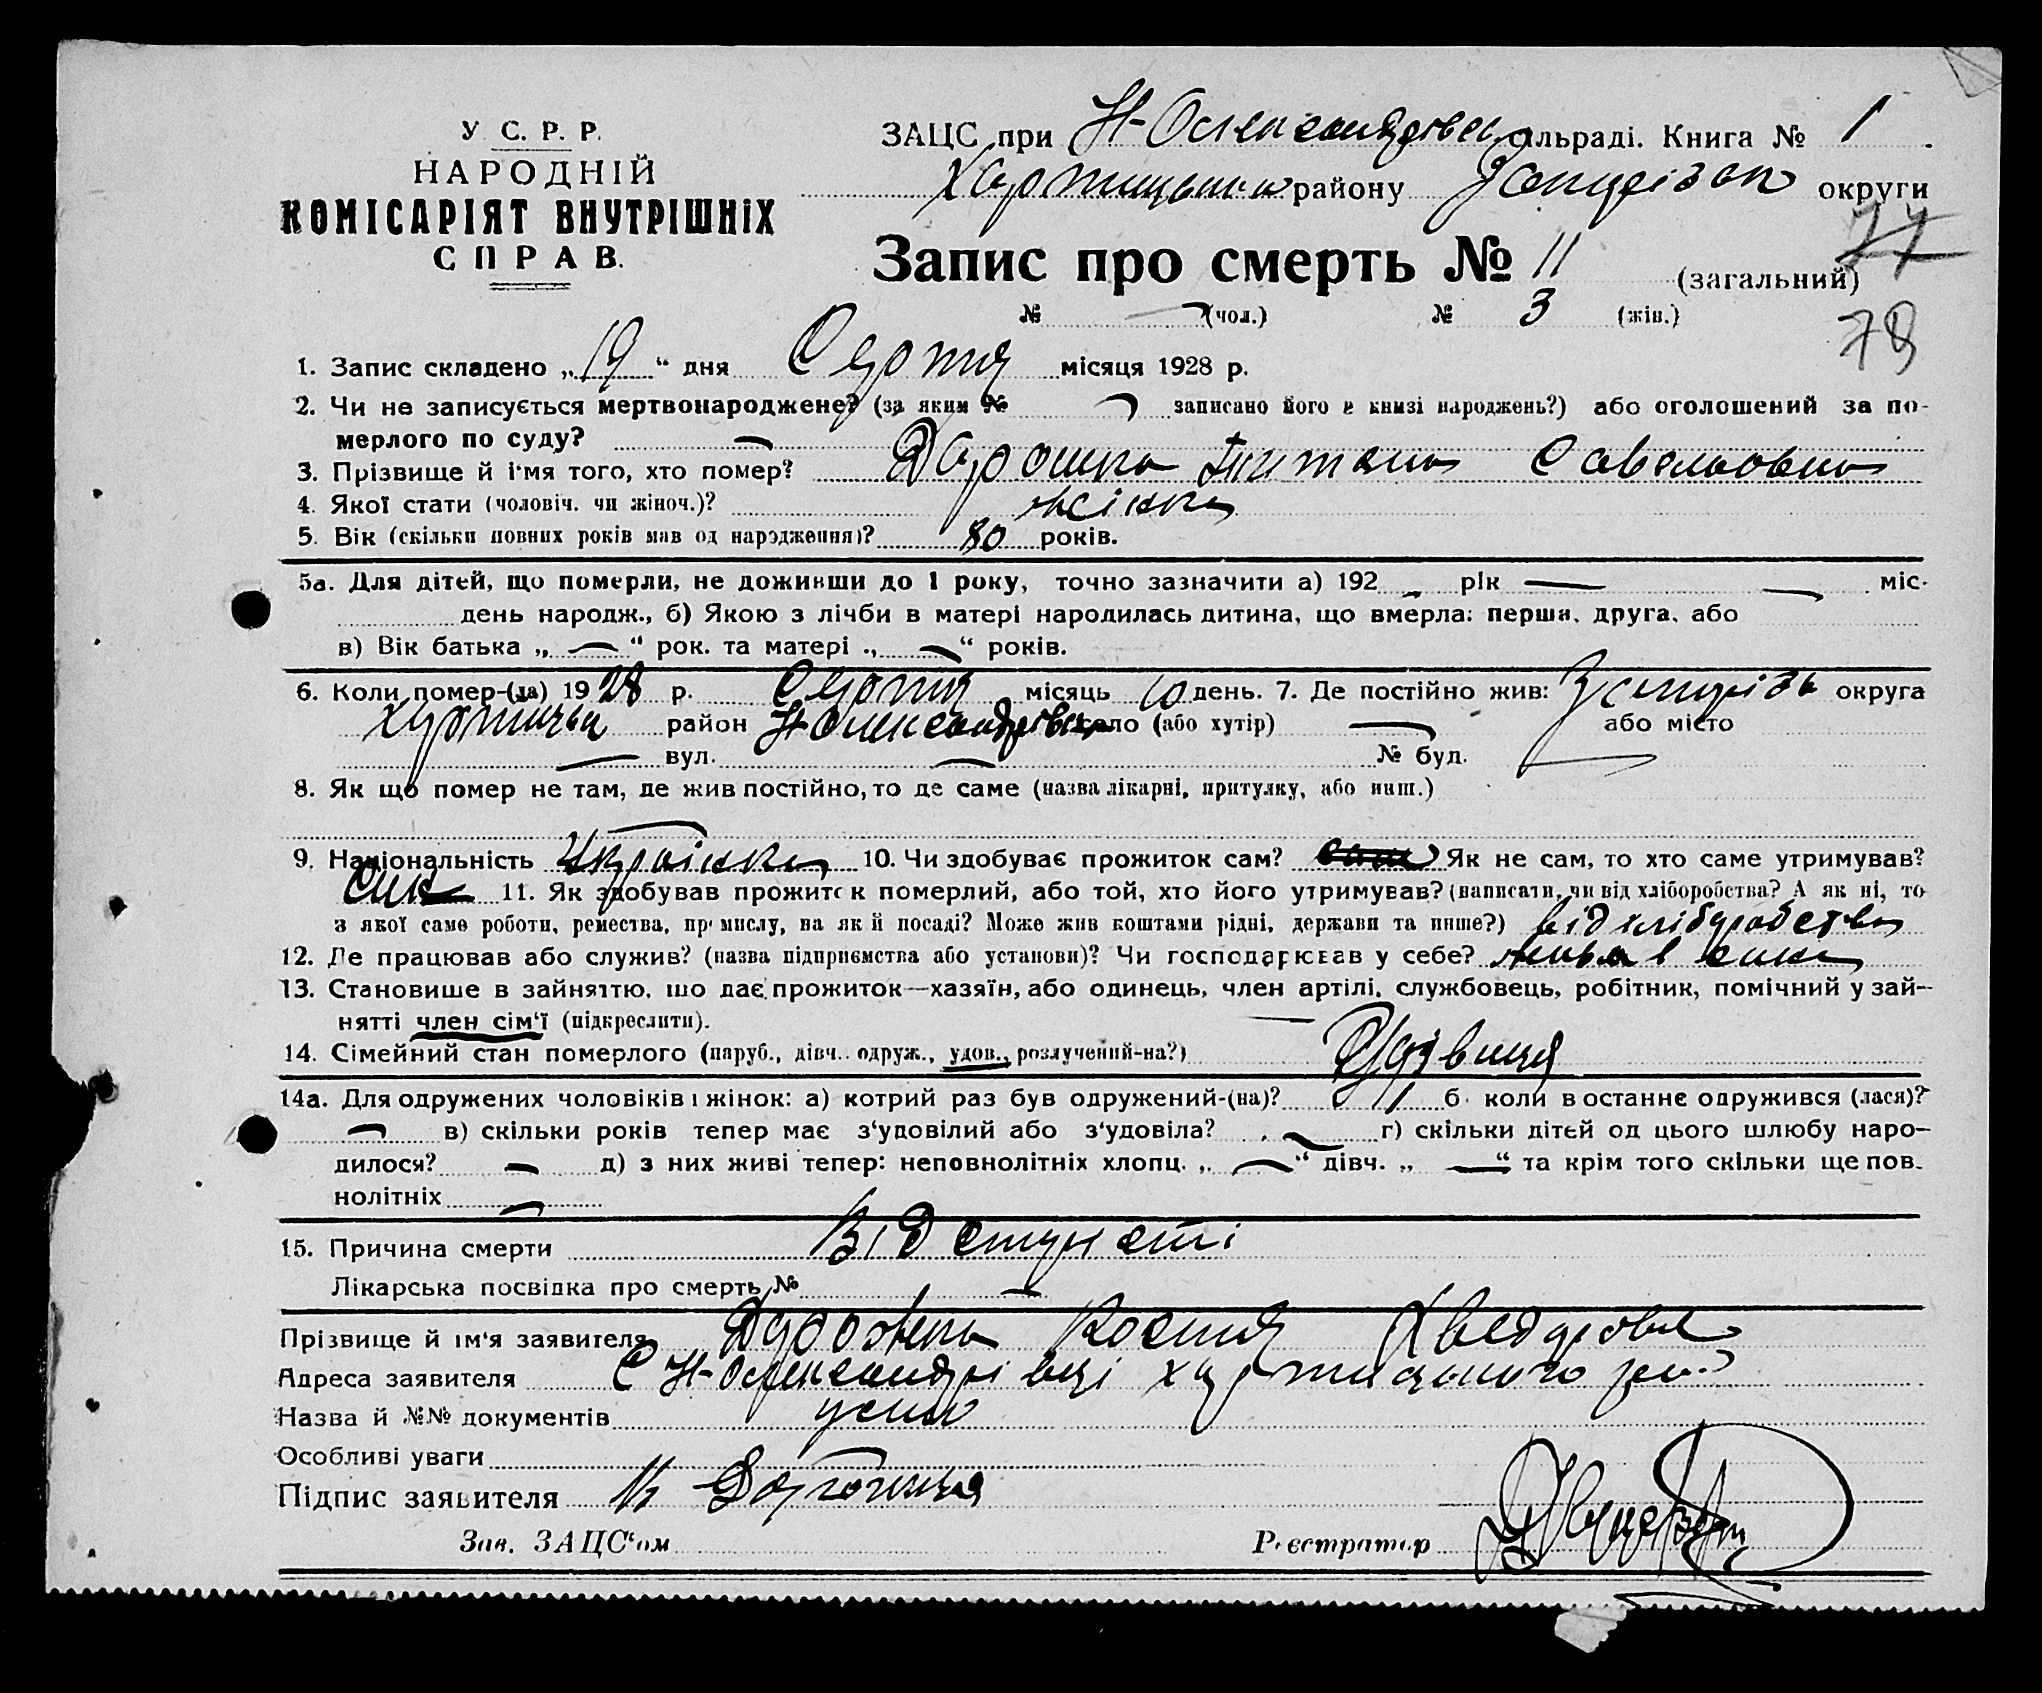 У. С. Р. Р.
НАРОДНІЙ
КОМІСАРІЯТ ВНУТРІШНІХ
СПРАВ.
ЗАЦС при Н-Олександрівск сільраді. Книга № 1.
Хортицького району Запорізок округи
77
Запис про смерть № 11 (загальний)
№ (чол.) № 3 (жін.)
78
1. Запис складено „19“ дня Серпня місяця 1928 р.
2. Чи не записується мертвонароджене? (за яким № записано його в книзі народжень?) або оголошений за по-
мерлого по суду?
3. Прізвище й і'мя того, хто помер? Савельовна
4. Якої стати (чоловіч. чи жіноч.)? жінка
5. Вік (скільки повних років мав од народження)? 80 років.
5а. Для дітей, що померли, не доживши до 1 року, точно зазначити а) 192 рік міс.
день народж., б) Якою з лічби в матері народилась дитина, що вмерла: перша, друга, або
в) Вік батька „ “ рок. та матері „ “ років.
6. Коли помер-(ла) 1928 р. Серпня місяць 10 день. 7. Де постійно жив: Запорізь округа
Хортицьк район Н Олександрівк село (або хутір) або місто
вул. № буд.
8. Як що помер не там, де жив постійно, то де саме (назва лікарні, притулку, або инш.)
9. Національність Українка 10. Чи здобуває прожиток сам? Як не сам, то хто саме утримував?
Син 11. Як здобував прожиток померлий, або той, хто його утримував? (написати, чи від хліборобства? А як ні, то
з якої саме роботи, ремества, промислу, на якій посаді? Може жив коштами рідні, держави та инше?) від хліборобства
12. Де працював або служив? (назва підприємства або установи)? Чи господарював у себе? жила в сина
13. Становише в зайняттю, що дає прожиток—хазяїн, або одинець, член артілі, службовець, робітник, помічний у зай-
нятті член сім'ї (підкреслити).
14. Сімейний стан померлого (паруб., дівч., одруж., удов., розлучений-на?) Удівиця
14а. Для одружених чоловіків і жінок: а) котрий раз був одружений-(на)? б) коли в останнє одружився (лася)?
в) скільки років тепер має з'удовілий або з'удовіла? г) скільки дітей од цього шлюбу наро-
дилося? д) з них живі тепер: неповнолітніх хлопц. „ “ дівч. „ “ та крім того скільки ще пов.
нолітніх
15. Причина смерти Від старості
Лікарська посвідка про смерть №
Прізвище й ім'я заявителя Костя
Адреса заявителя С Н-Олександрівці Хортицького рай
Назва й №№ документів усно
Особливі уваги
Підпис заявителя
Зав. ЗАЦС'ом Реєстратор